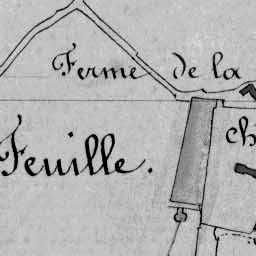 Ferme de la
ch
Feuille.